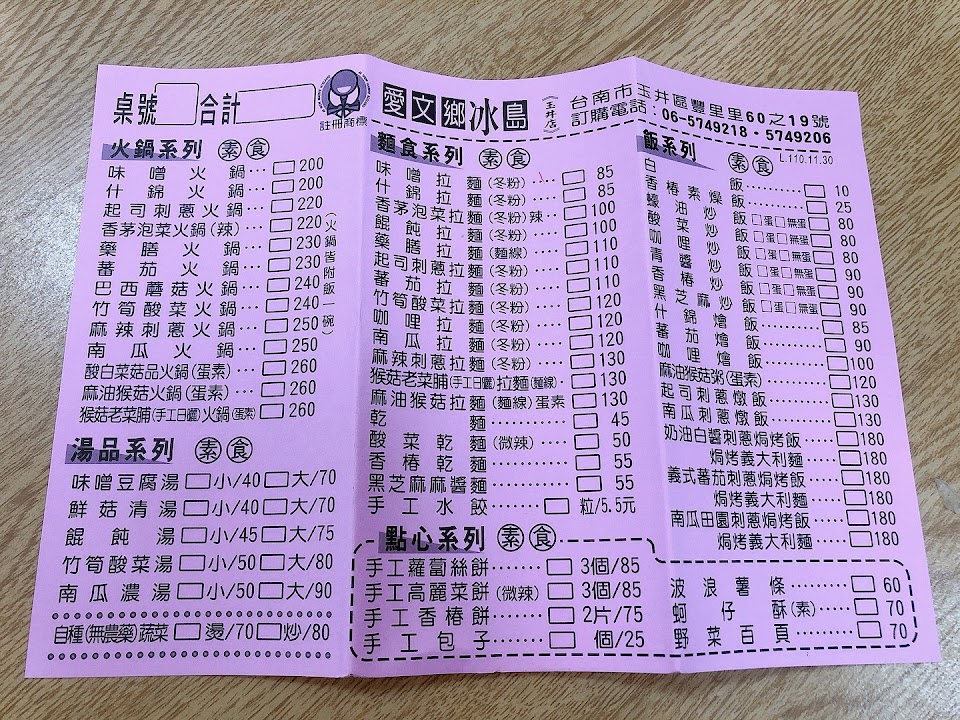 桌號 合計
註冊商標
愛文鄉冰島(玉井店)
台南市玉井區豐里里60之19號
訂購電話:06-5749218·5749206
L.110.11.30
火鍋系列 素食
味噌火鍋…□200
什錦火鍋…□200
起司刺蔥火鍋…□220
香茅泡菜火鍋(辣)…□220
藥膳火鍋…□230
蕃茄火鍋…□230
巴西蘑菇火鍋…□240
竹筍酸菜火鍋…□240
麻辣刺蔥火鍋…□250
南瓜火鍋…□250
酸白菜菇品火鍋(蛋素)…□260
麻油猴菇火鍋(蛋素)…□260
猴菇老菜脯(手工日曬)火鍋(蛋素)□260
(火鍋皆附飯一碗)
湯品系列 素食
味噌豆腐湯□小/40□大/70
鮮菇清湯□小/40□大/70
餛飩湯□小/45□大/75
竹筍酸菜湯□小/50□大/80
南瓜濃湯□小/50□大/90
自種(無農藥)蔬菜□燙/70□炒/80
麵食系列 素食
味噌拉麵(冬粉)…□85
什錦拉麵(冬粉)…□85
香茅泡菜拉麵(冬粉)辣…□100
餛飩拉麵(冬粉)…□100
藥膳拉麵(麵線)…□110
起司刺蔥拉麵(冬粉)…□110
蕃茄拉麵(冬粉)…□110
竹筍酸菜拉麵(冬粉)…□120
咖哩拉麵(冬粉)…□120
南瓜拉麵(冬粉)…□120
麻辣刺蔥拉麵(冬粉)…□130
猴菇老菜脯(手工日曬)拉麵(麵線)·□130
麻油猴菇拉麵(麵線)蛋素□130
乾麵…□45
酸菜乾麵(微辣)…□50
香椿乾麵…□55
黑芝麻麻醬麵…□55
手工水餃□粒/5.5元
飯系列 素食
白飯…□10
香椿素燥飯…□25
蠔油炒飯□蛋□無蛋□80
酸菜炒飯□蛋□無蛋□80
咖哩炒飯□蛋□無蛋□80
青醬炒飯□蛋□無蛋□90
香椿炒飯□蛋□無蛋□90
黑芝麻炒飯□蛋□無蛋□90
什錦燴飯…□85
蕃茄燴飯…□90
咖哩燴飯…□100
麻油猴菇粥(蛋素)…□120
起司刺蔥燉飯…□130
南瓜刺蔥燉飯…□130
奶油白醬刺蔥焗烤飯…□180
焗烤義大利麵…□180
義式蕃茄刺蔥焗烤飯…□180
焗烤義大利麵…□180
南瓜田園刺蔥焗烤飯…□180
焗烤義大利麵…□180
點心系列 素食
手工蘿蔔絲餅…□3個/85
手工高麗菜餅(微辣)□3個/85
手工香椿餅…□2片/75
手工包子…□個/25
波浪薯條…□60
蚵仔酥(素)…□70
野菜百頁…□70